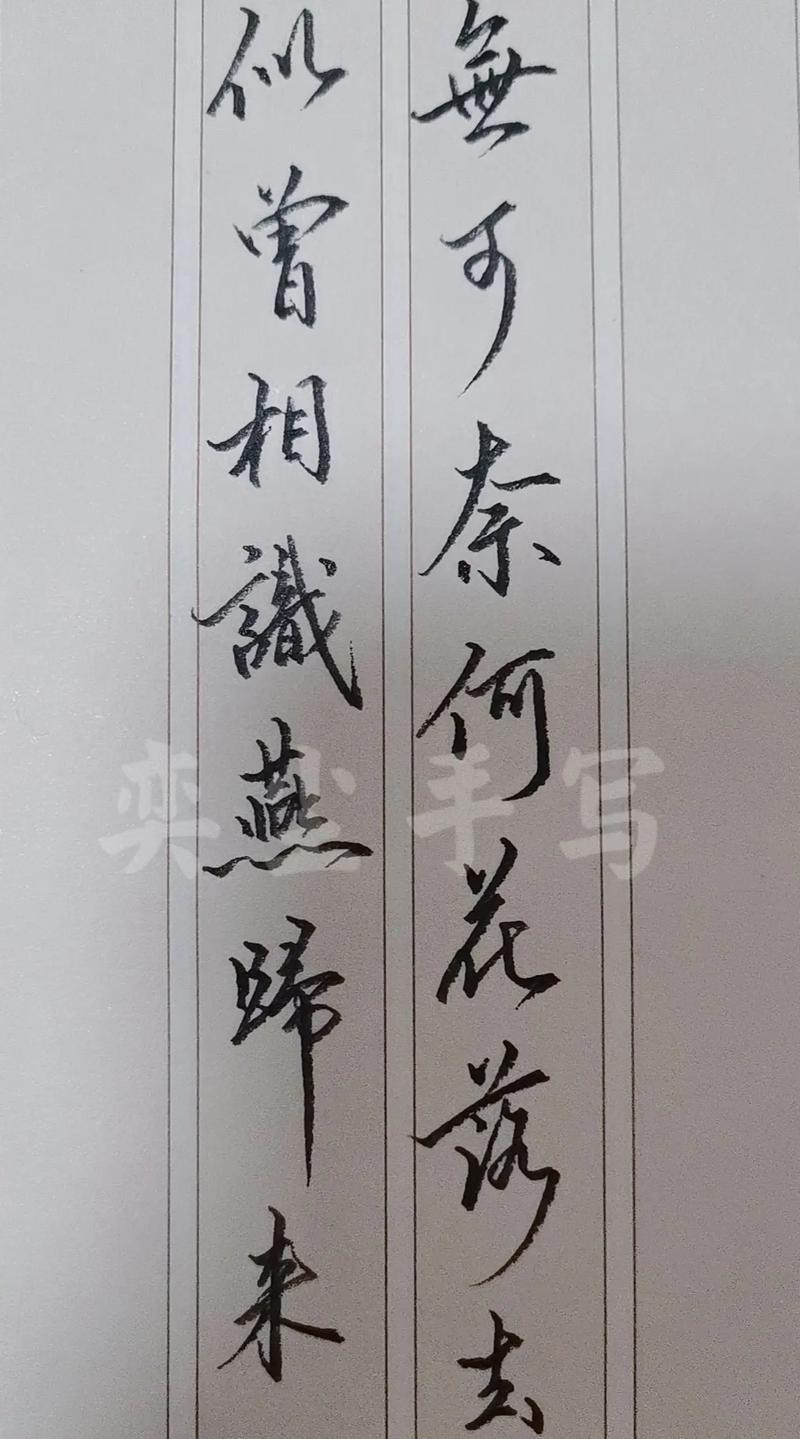 無可奈何花落去
似曾相識燕歸来
奕尘手写